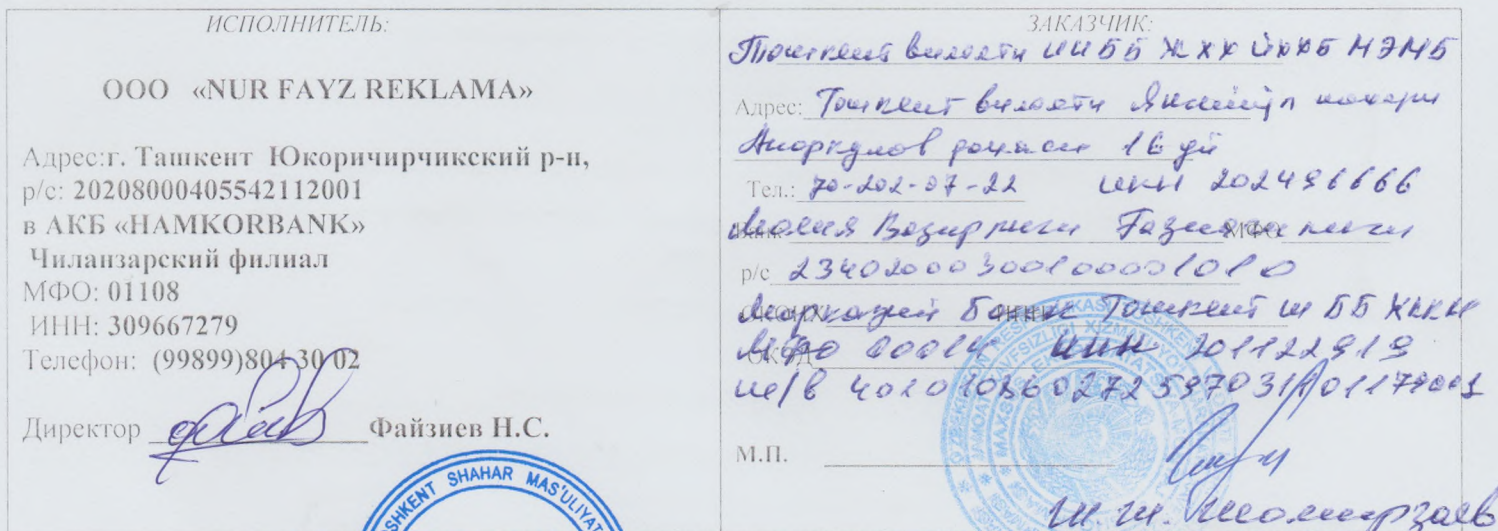 ИСПОЛНИТЕЛЬ:
ООО «NUR FAYZ REKLAMA»
Адрес:г. Ташкент Юкоричирчикский р-н,
р/с: 20208000405542112001
в АКБ «HAMKORBANK»
Чиланзарский филиал
МФО: 01108
ИНН: 309667279
Телефон: (99899)804-30-02
Директор Файзиев Н.С.
SHKENT SHAHAR MAS'ULIYAT
ЗАКАЗЧИК:
Тошкент вилояти ИИББ ЖХХ ЙХХБ МЭМБ
Адрес: Тошкент вилояти шахри
16 уй
Тел.: 70-202-07-22 ИНН 202496666
Молия Вазирлиги Газначилиги
р/с 23402000300100001010
Марказий Банк Тошкент ш ББ ХККМ
МФО 00014 ИНН 201122919
ш/в
М.П.
Ш.Ш.